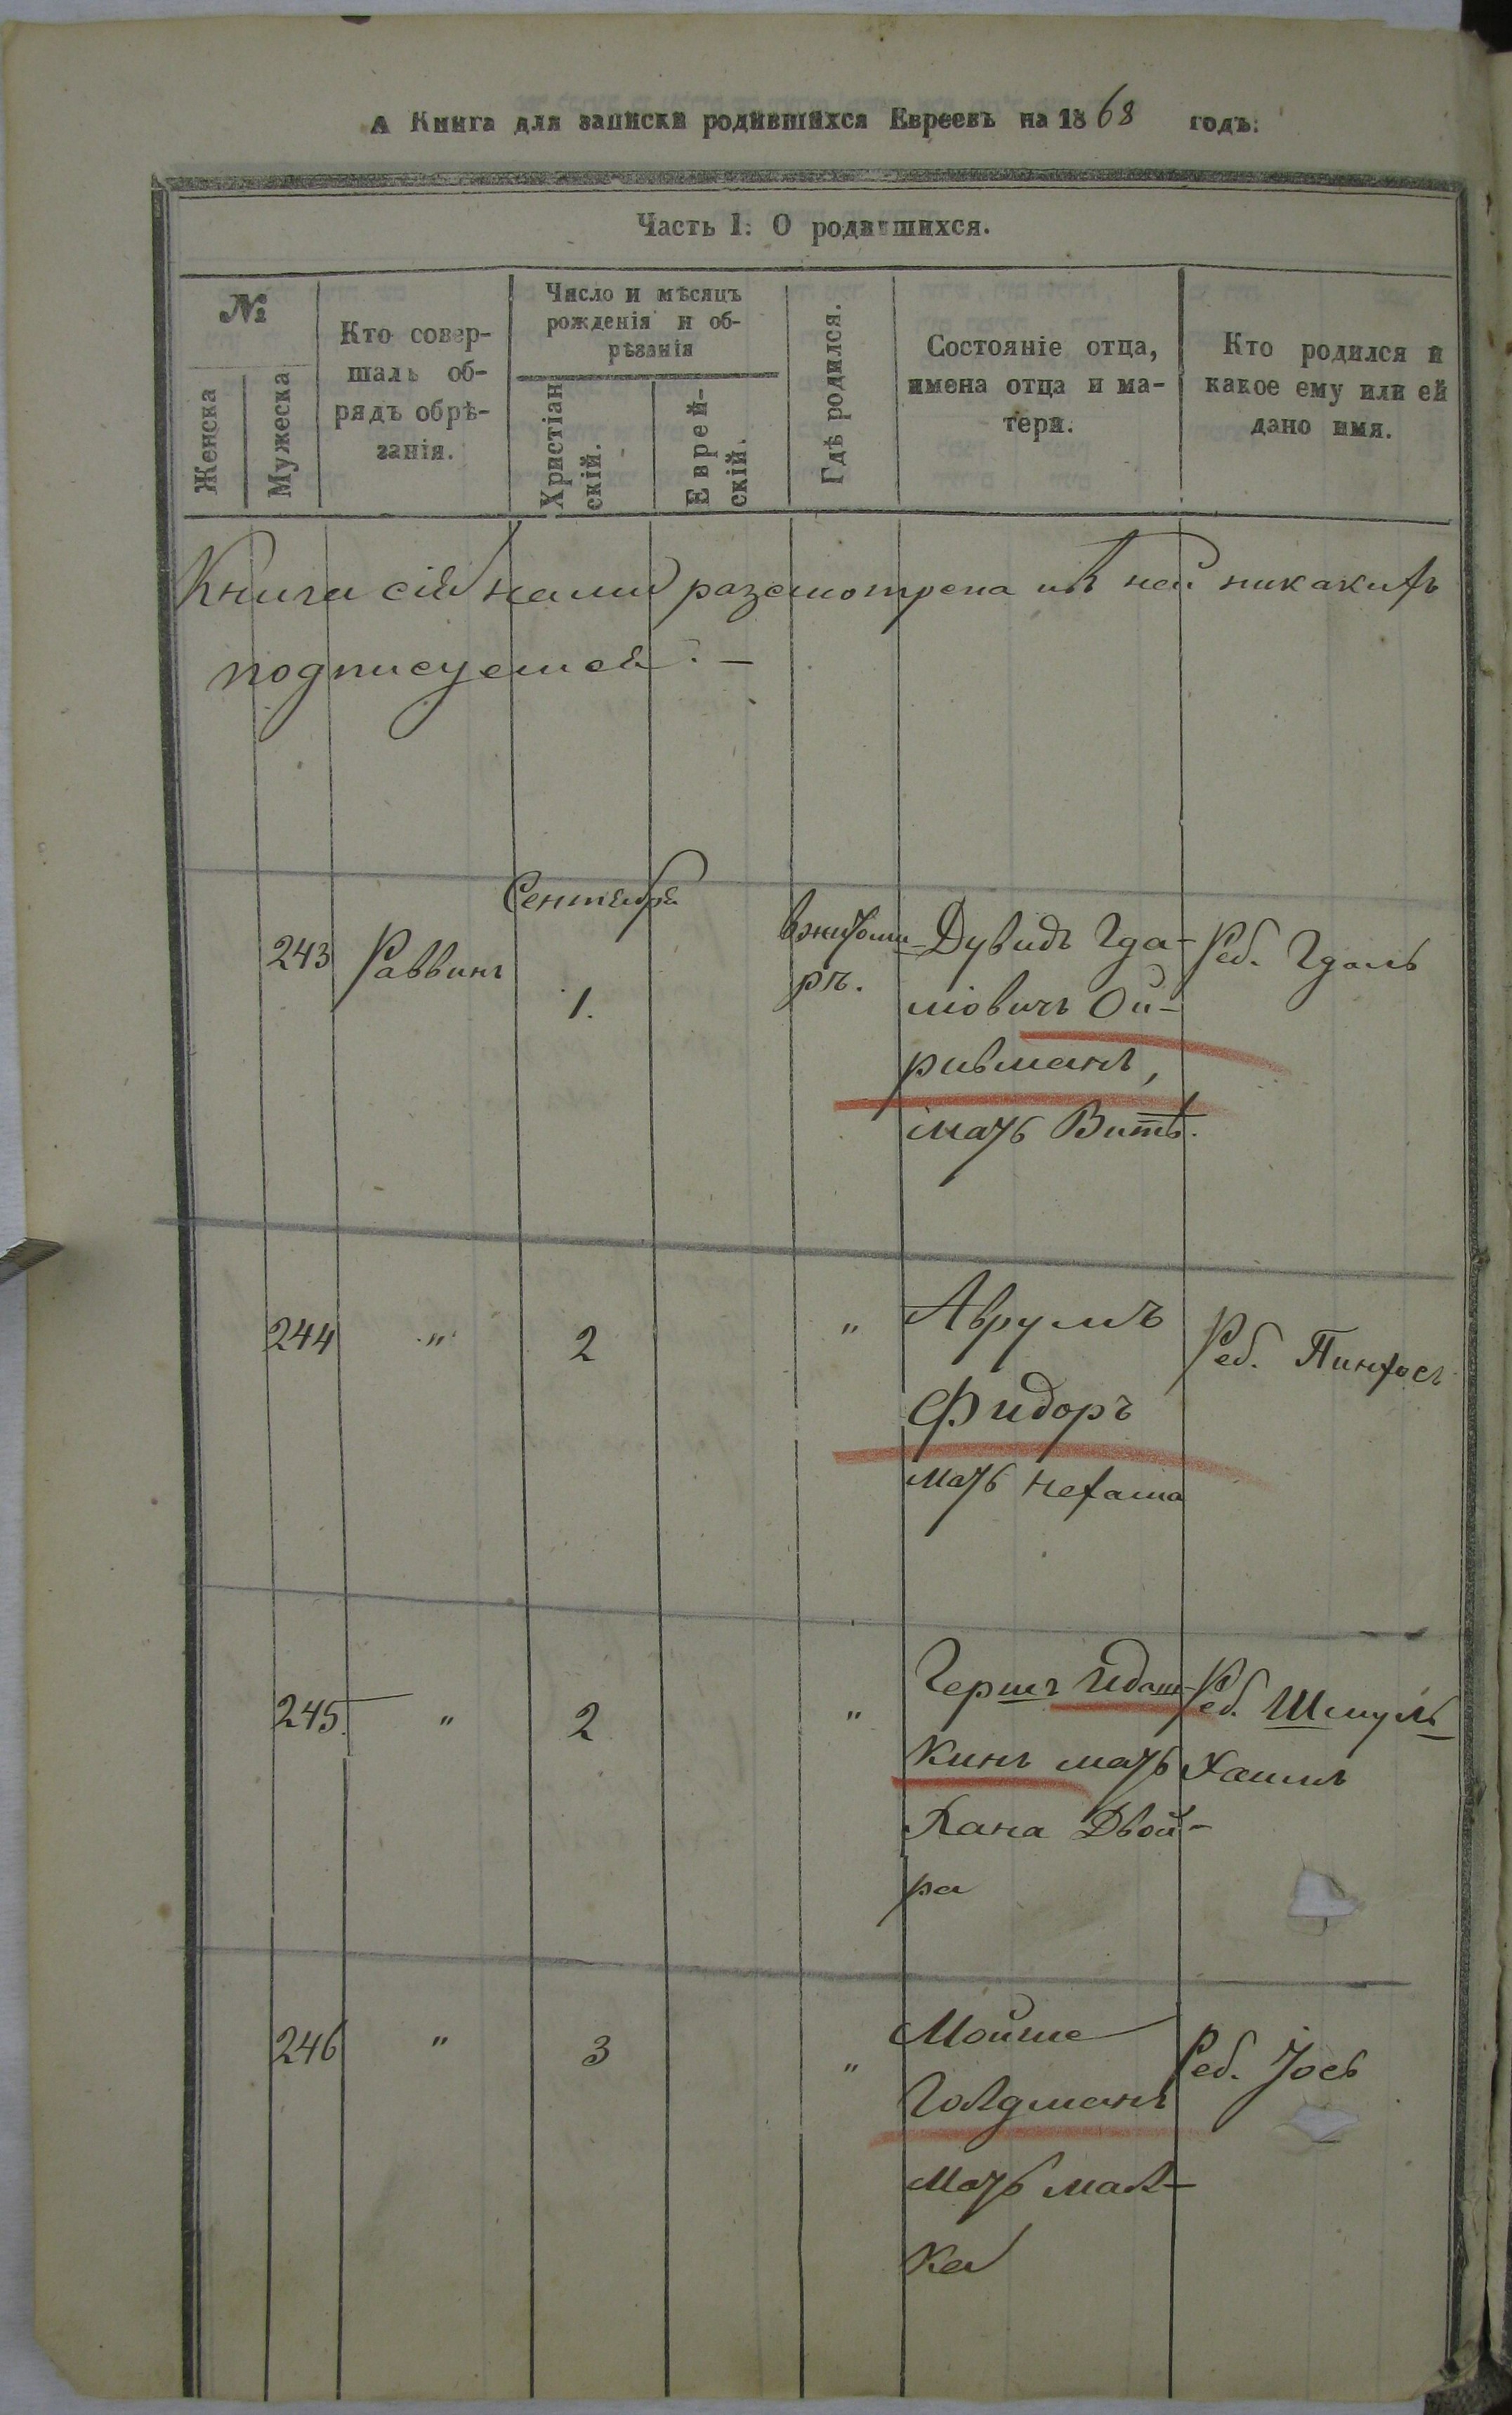 А Книга для записки родившихся Евреевъ на 1868 годъ:
Часть I: О родившихся.
№
Женска
Мужеска
Кто совер-
шалъ об-
рядъ обрѣ-
занія.
Число и мѣсяцъ
рожденія и об-
рѣзанія
Христіан
скій.
Еврей-
скій.
Гдѣ родился.
Состояніе отца,
имена отца и ма-
тери.
Кто родился и
какое ему или ей
дано имя.
Книга сія нами разсмотрена въ ней никакихъ
подписуемся. —
Сентября
243 Раввинъ 1.
вжитоми-
рѣ.
Дувидъ Гда-
ліовичъ Ой-
ривманъ,
мать Витѣ.
Реб. Гдаль
244 " 2 "
Аврумъ
Фидоръ
мать Нехама
Реб. Пинхосъ
245 " 2 "
Гершъ
кинъ мать
Хана Двой-
ра
Реб. Шмуль
Хаимъ
246 " 3 "
Мойше
Голдманъ
мать мал-
ка
Реб. Іось